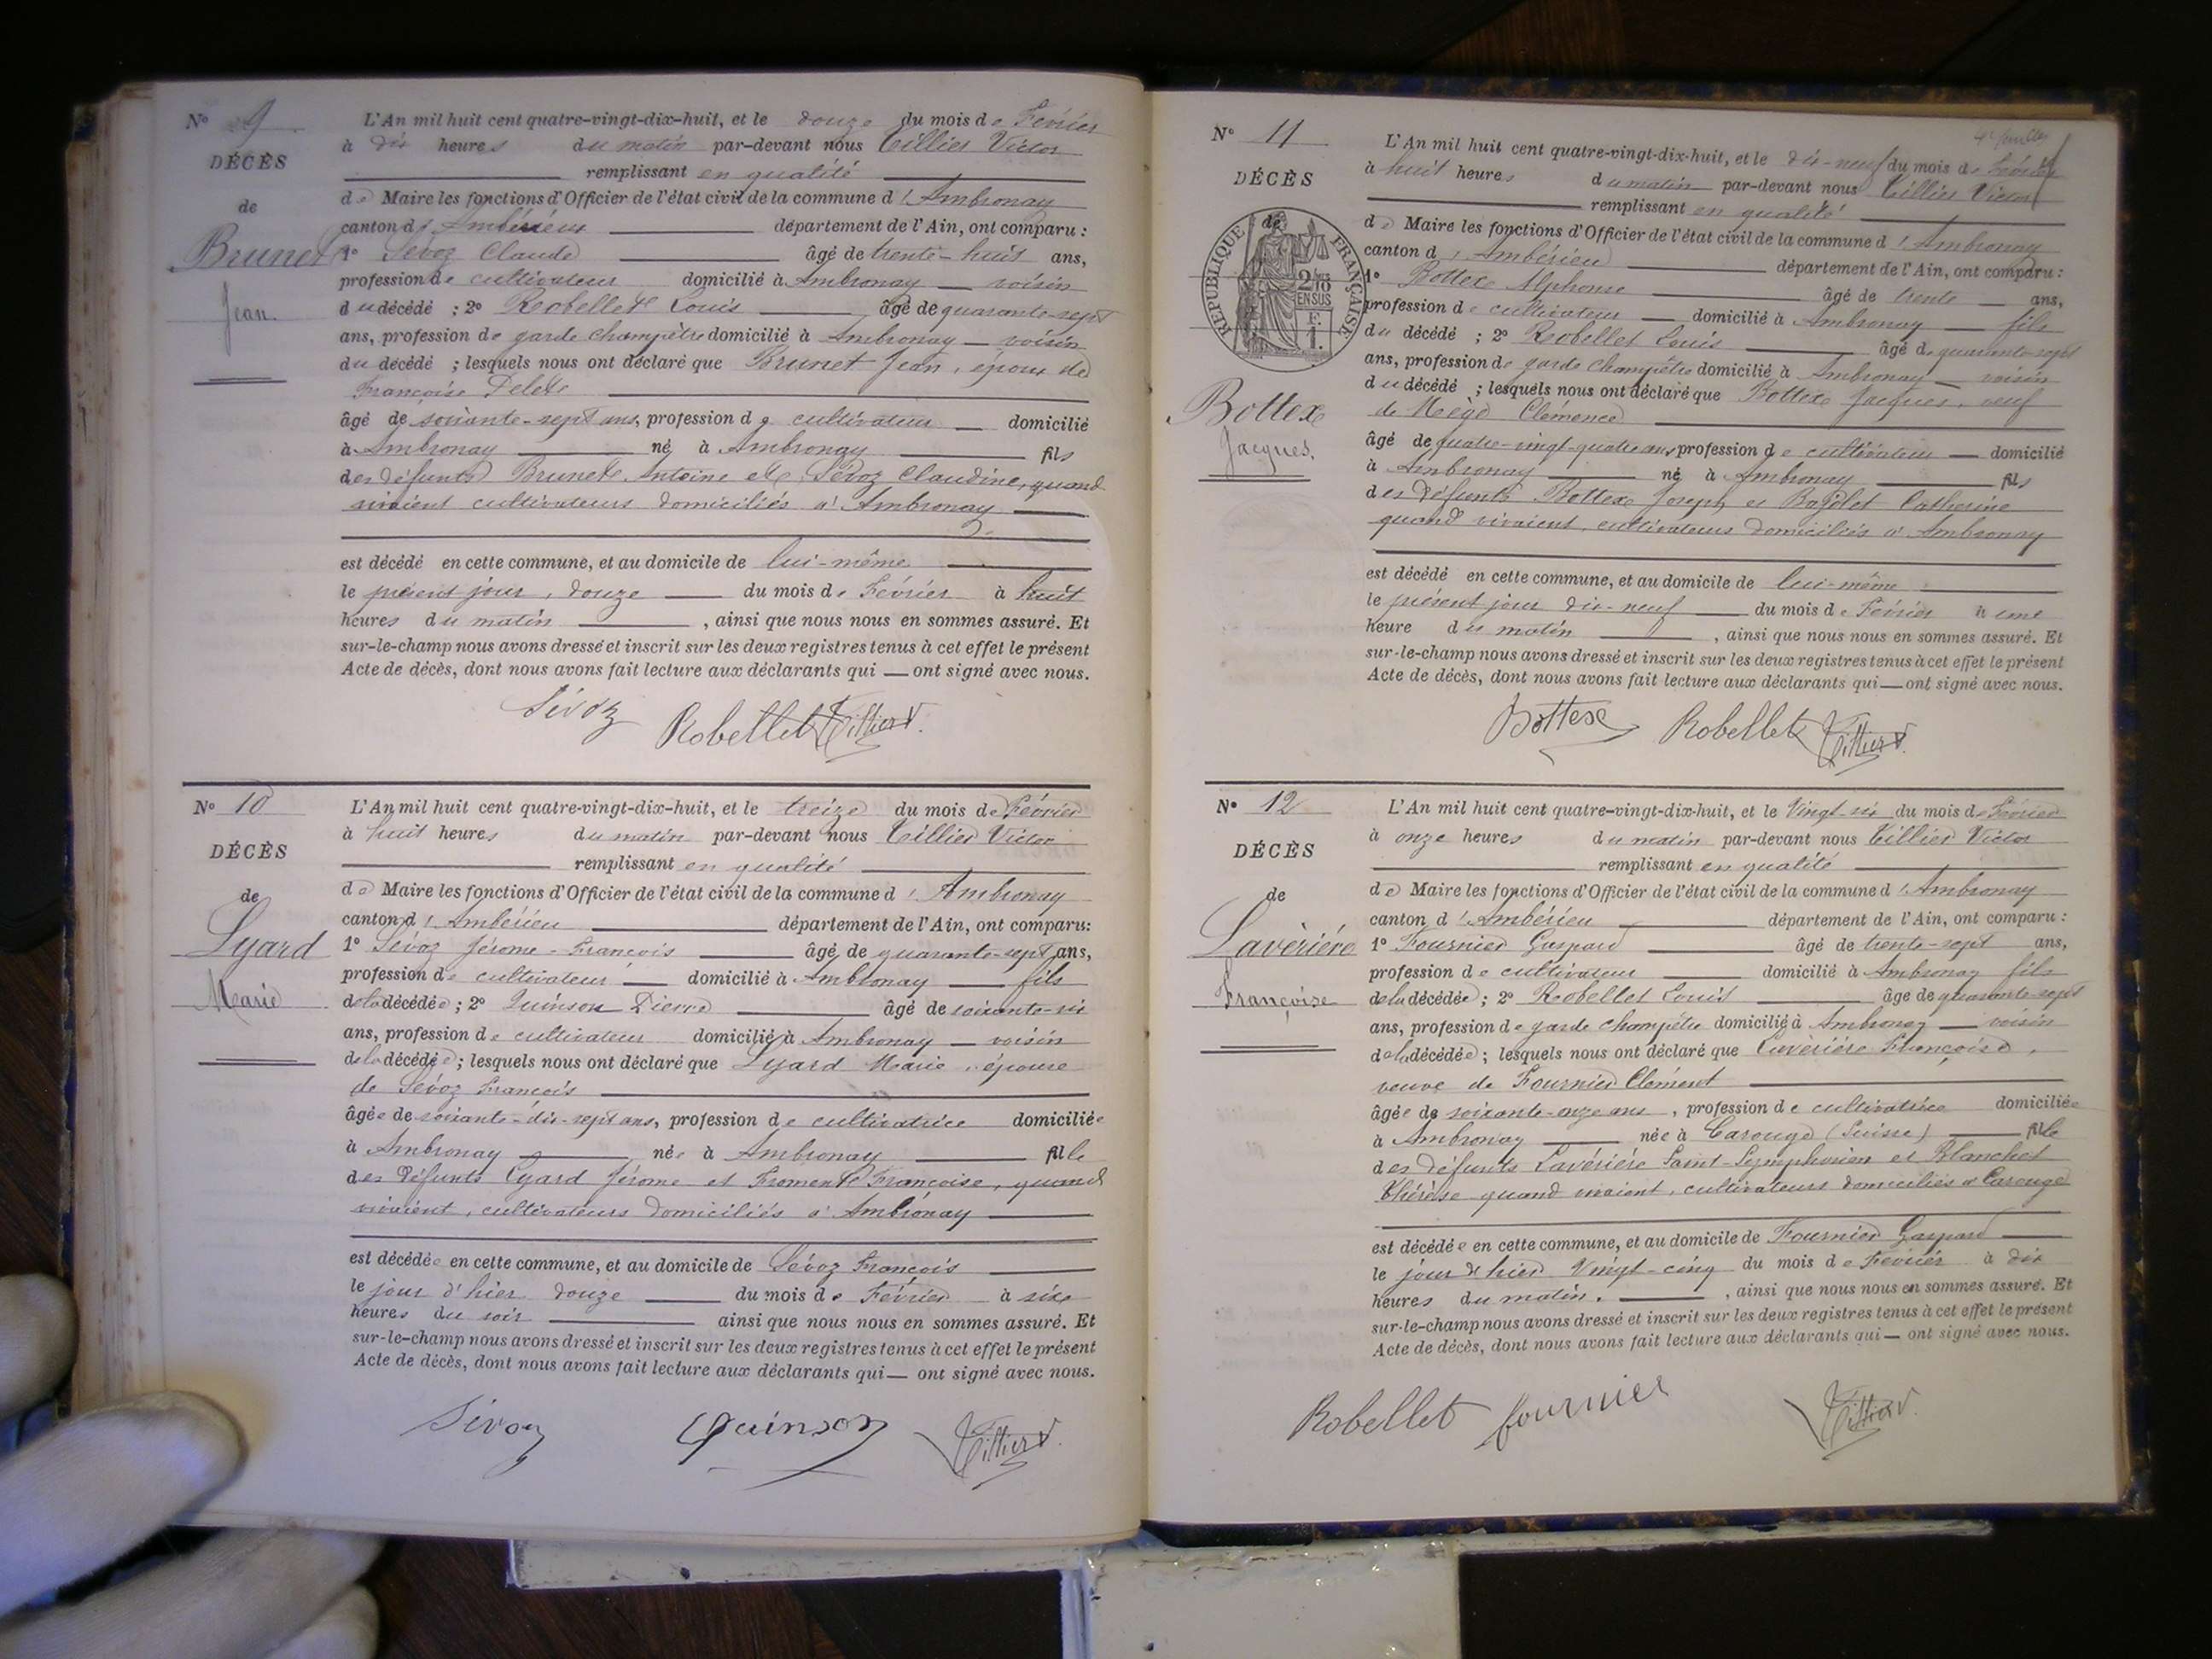 N° 9
DÉCÈS
de
Brunet
Jean.
L'An mil huit cent quatre-vingt-dix-huit, et le douze du mois de Février
à dix heures du matin par-devant nous Tillier Victor
remplissant en qualité
de Maire les fonctions d'Officier de l'état civil de la commune d'Ambronay
canton d'Ambérieu département de l'Ain, ont comparu :
1° Sévoz Claude âgé de trente-huit ans,
profession de cultivateur domicilié à Ambronay voisin
du décédé ; 2° Robellet Louis âgé de quarante-sept
ans, profession de garde champêtre domicilié à Ambronay voisin
du décédé ; lesquels nous ont déclaré que Brunet Jean, époux de
Françoise
âgé de soixante-sept ans, profession de cultivateur domicilié
à Ambronay né à Ambronay fils
des défunts Brunet Antoine et Sévoz Claudine, quand
vivaient cultivateurs domiciliés à Ambronay
est décédé en cette commune, et au domicile de lui-même
le présent jour, douze du mois de Février à huit
heures du matin , ainsi que nous nous en sommes assuré. Et
sur-le-champ nous avons dressé et inscrit sur les deux registres tenus à cet effet le présent
Acte de décès, dont nous avons fait lecture aux déclarants qui — ont signé avec nous.
Sévoz Robellet Tillier V.
N° 10
DÉCÈS
de
Lyard
Marie
L'An mil huit cent quatre-vingt-dix-huit, et le treize du mois de Février
à huit heures du matin par-devant nous Tillier Victor
remplissant en qualité
de Maire les fonctions d'Officier de l'état civil de la commune d'Ambronay
canton d'Ambérieu département de l'Ain, ont comparu:
1° Sévoz Jérome-François âgé de quarante-sept ans,
profession de cultivateur domicilié à Ambronay fils
de la décédée ; 2° Quinson Pierre âgé de soixante-six
ans, profession de cultivateur domicilié à Ambronay voisin
de la décédée ; lesquels nous ont déclaré que Lyard Marie, épouse
de Sévoz François
âgée de soixante-dix-sept ans, profession de cultivatrice domiciliée
à Ambronay née à Ambronay fille
des défunts Lyard Jérome et Froment Françoise, quand
vivaient, cultivateurs domiciliés à Ambronay
est décédée en cette commune, et au domicile de Sévoz François
le jour d'hier douze du mois de Février à six
heures du soir ainsi que nous nous en sommes assuré. Et
sur-le-champ nous avons dressé et inscrit sur les deux registres tenus à cet effet le présent
Acte de décès, dont nous avons fait lecture aux déclarants qui — ont signé avec nous.
Sévoz Quinson Tillier V.
4e feuille
N° 11
DÉCÈS
de
RÉPUBLIQUE FRANÇAISE
2/10
EN SUS
F.
1.
Bottex
Jacques.
L'An mil huit cent quatre-vingt-dix-huit, et le dix-neuf du mois de Février
à huit heures du matin par-devant nous Tillier Victor
remplissant en qualité
de Maire les fonctions d'Officier de l'état civil de la commune d'Ambronay
canton d'Ambérieu département de l'Ain, ont comparu :
1° Bottex Alphonse âgé de trente ans,
profession de cultivateur domicilié à Ambronay fils
du décédé ; 2° Robellet Louis âgé de quarante-sept
ans, profession de garde champêtre domicilié à Ambronay voisin
du décédé ; lesquels nous ont déclaré que Bottex Jacques, veuf
de Clémence
âgé de quatre-vingt-quatre ans, profession de cultivateur domicilié
à Ambronay né à Ambronay fils
des défunts Bottex Joseph et Catherine
quand vivaient, cultivateurs domiciliés à Ambronay
est décédé en cette commune, et au domicile de lui-même
le présent jour dix-neuf du mois de Février à une
heure du matin , ainsi que nous nous en sommes assuré. Et
sur-le-champ nous avons dressé et inscrit sur les deux registres tenus à cet effet le présent
Acte de décès, dont nous avons fait lecture aux déclarants qui — ont signé avec nous.
Bottex Robellet Tillier V.
N° 12
DÉCÈS
de
Lavèrière
Françoise
L'An mil huit cent quatre-vingt-dix-huit, et le Vingt-six du mois de Février
à onze heures du matin par-devant nous Tillier Victor
remplissant en qualité
de Maire les fonctions d'Officier de l'état civil de la commune d'Ambronay
canton d'Ambérieu département de l'Ain, ont comparu :
1° Fournier Gaspard âgé de trente-sept ans,
profession de cultivateur domicilié à Ambronay fils
de la décédée ; 2° Robellet Louis âgé de quarante-sept
ans, profession de garde champêtre domicilié à Ambronay voisin
de la décédée ; lesquels nous ont déclaré que Lavèrière Françoise,
veuve de Fournier Clément
âgée de soixante-onze ans, profession de cultivatrice domiciliée
à Ambronay née à Carouge (Suisse) fille
des défunts Lavèrière Saint-Symphorien et Blanchet
Thérèse quand vivaient, cultivateurs domiciliés à Carouge
est décédée en cette commune, et au domicile de Fournier Gaspard
le jour d'hier Vingt-cinq du mois de Février à dix
heures du matin. , ainsi que nous nous en sommes assuré. Et
sur-le-champ nous avons dressé et inscrit sur les deux registres tenus à cet effet le présent
Acte de décès, dont nous avons fait lecture aux déclarants qui — ont signé avec nous.
Robellet fournier Tillier V.